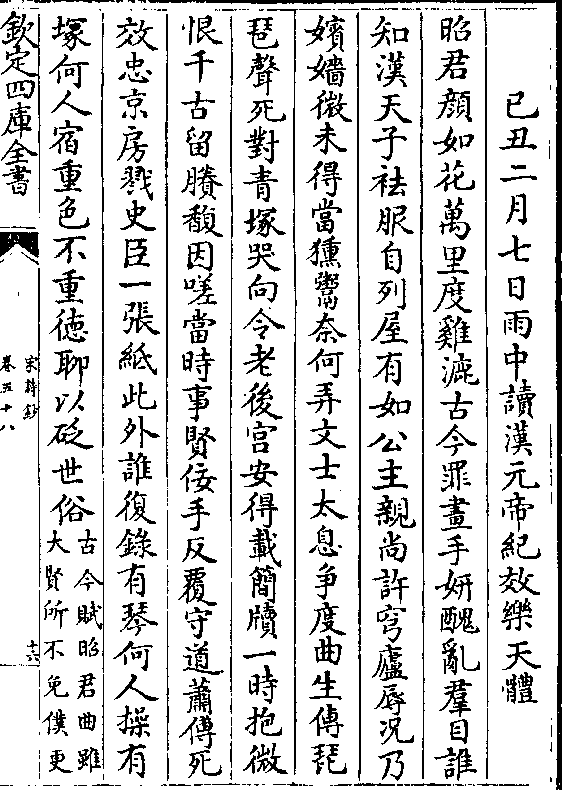 己丑二月七日雨中讀漢元帝紀效樂天體
昭君顔如花萬里度雞漉古今罪畫手妍醜亂羣目誰
知漢天子袪服自列屋有如公主親尚許穹廬辱況乃
嬪嬙微未得當獯鬻奈何弄文士太息争度曲生傳琵
琶聲死對青塚哭向令老後宫安得載簡牘一時抱微
恨千古留賸馥因嗟當時事賢佞手反覆守道蕭傅死
效忠京房戮史臣一張紙此外誰復錄有琴何人操有
塚何人宿重色不重德聊以砭世俗古今賦昭君曲雖
大賢所不免僕更
欽定四庫全書
宋詩鈔
卷五十八
十六